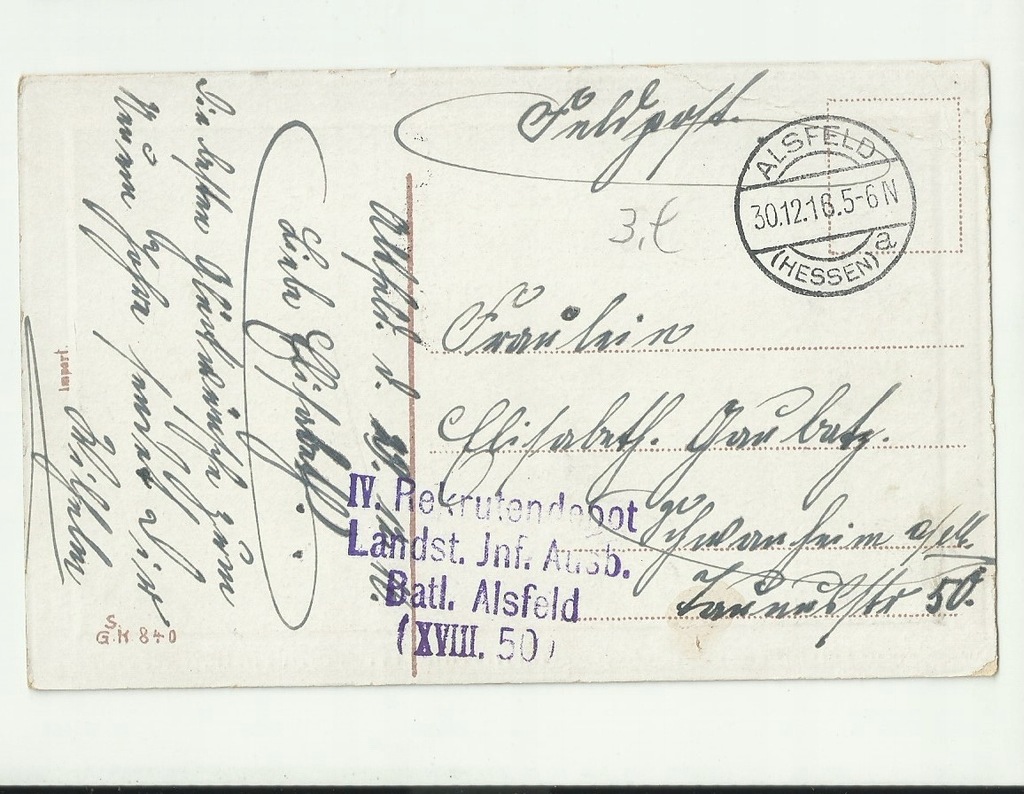 Feldpost.
ALSFELD
30.12.16.5-6 N
(HESSEN) a
3,€
Fräulein
Elisabeth. Gaubatz.
Schwanheim a/M.
Taunusstr 50.
IV. Rekrutendepot
Landst. Jnf. Ausb.
Batl. Alsfeld
(XVIII. 50)
Alsfeld. d. 29.
Liebe Elisabeth.
Die besten Glückwünsche zum
Neuen Jahre sendet Dir
Wilhelm
Import
S.
G.K 840